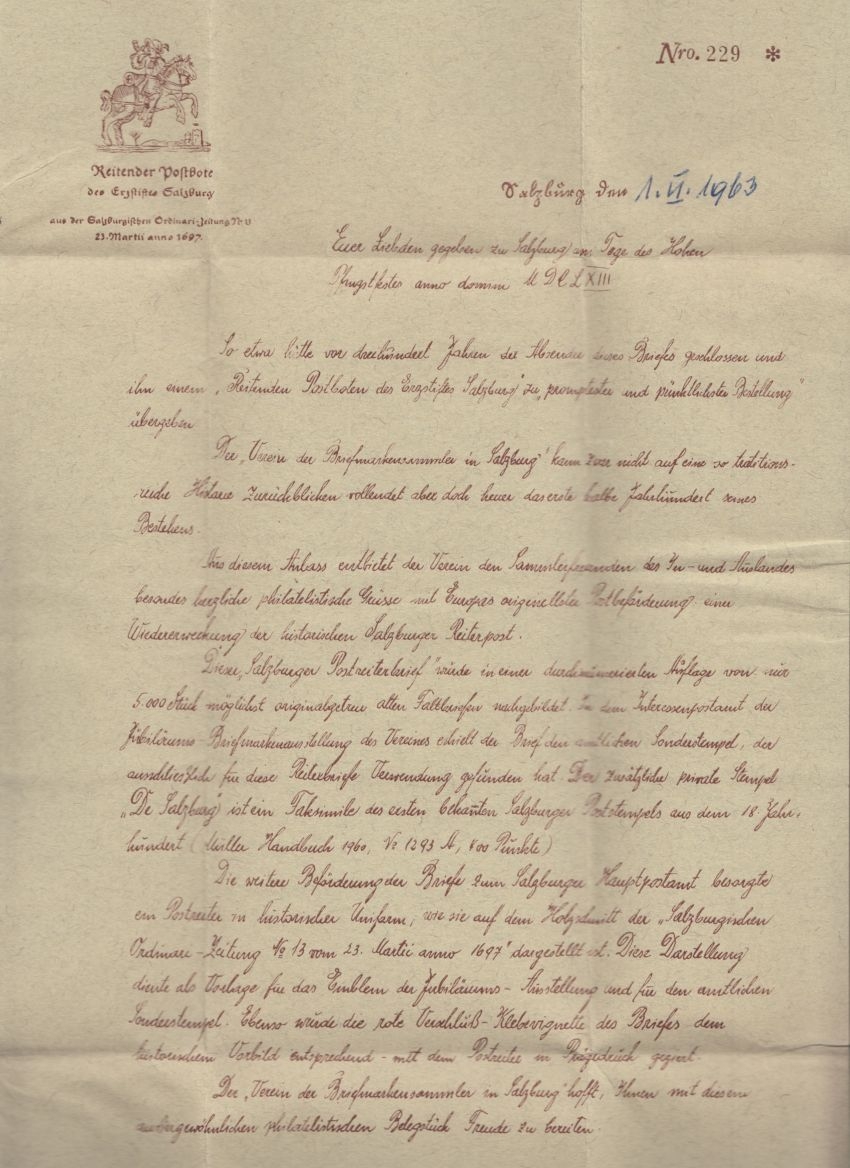 Nro. 229 *
Reitender Postbote
des Erzstiftes Salzburg
aus der Salzburgischen Ordinari-Zeitung Nr 13
23. Martii anno 1697.
Salzburg den 1. VI. 1963
Euer Liebden gegeben zu Salzburg am Tage des Hohen
Pfingstfestes anno domini M D C L XIII
So etwa hätte vor dreihundert Jahren der Absender dieses Briefes geschlossen und
ihn einem „Reitenden Postboten des Erzstiftes Salzburg" zu „promptester und pünktlichster Bestellung"
übergeben
Der „Verein der Briefmarkensammler in Salzburg" kann zwar nicht auf eine so traditions-
reiche Historie zurückblicken vollendet aber doch heuer das erste halbe Jahrhundert seines
Bestehens.
Aus diesem Anlass entbietet der Verein den Sammlerfreunden des In- und Auslandes
besonders herzliche philatelistische Grüsse mit Europas originellster Postbeförderung: einer
Wiedererweckung der historischen Salzburger Reiterpost.
Dieser „Salzburger Postreiterbrief" wurde in einer durchnumerierten Auflage von nur
5.000 Stück möglichst originalgetreu alten Faltbriefen nachgebildet. In dem Interessenpostamt der
Jubiläums-Briefmarkenausstellung des Vereines erhielt der Brief den amtlichen Sonderstempel, der
ausschliesslich für diese Reiterbriefe Verwendung gefunden hat. Der zusätzliche private Stempel
„De Salzburg" ist ein Faksimile des ersten bekañten Salzburger Poststempels aus dem 18. Jahr-
hundert (Müller Handbuch 1960, No 1293 A, 800 Punkte)
Die weitere Beförderung der Briefe zum Salzburger Hauptpostamt besorgte
ein Postreiter in historischer Uniform, wie sie auf dem Holzschnitt der „Salzburgischen
Ordinari-Zeitung No 13 vom 23. Martii anno 1697" dargestellt ist. Diese Darstellung
diente als Vorlage für das Emblem der Jubiläums-Ausstellung und für den amtlichen
Sonderstempel. Ebenso wurde die rote Verschluß-Klebevignette des Briefes dem
historischem Vorbild entsprechend - mit dem Postreiter in Prägedruck geziert.
Der „Verein der Briefmarkensammler in Salzburg" hofft, Ihnen mit diesem
außergewöhnlichen philatelistischen Belegstück Freude zu bereiten.